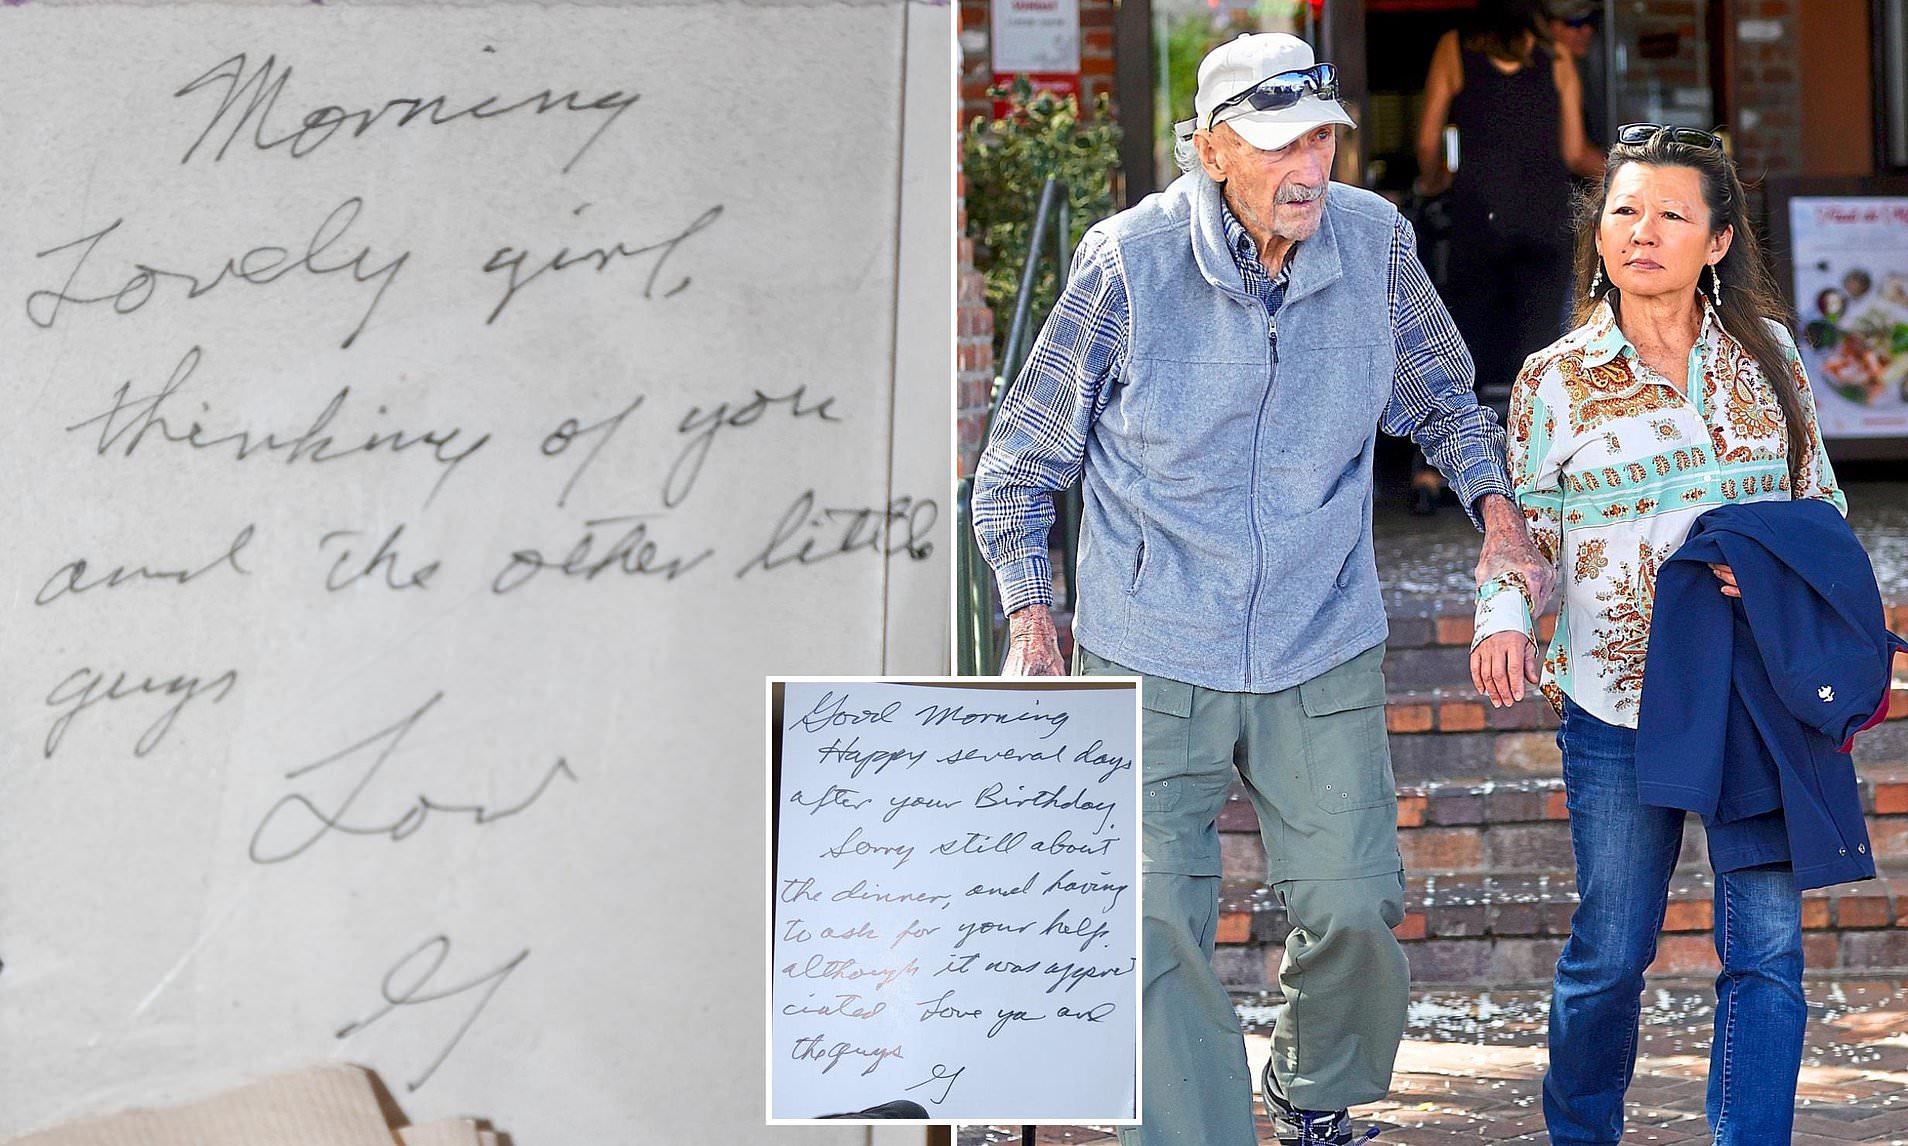 Morning
Lovely girl,
thinking of you
and the other little
guys
Love
G
Good Morning
Happy several days
after your Birthday.
Sorry still about
the dinner, and having
to ask for your help.
although it was appre
ciated Love ya and
the guys
G